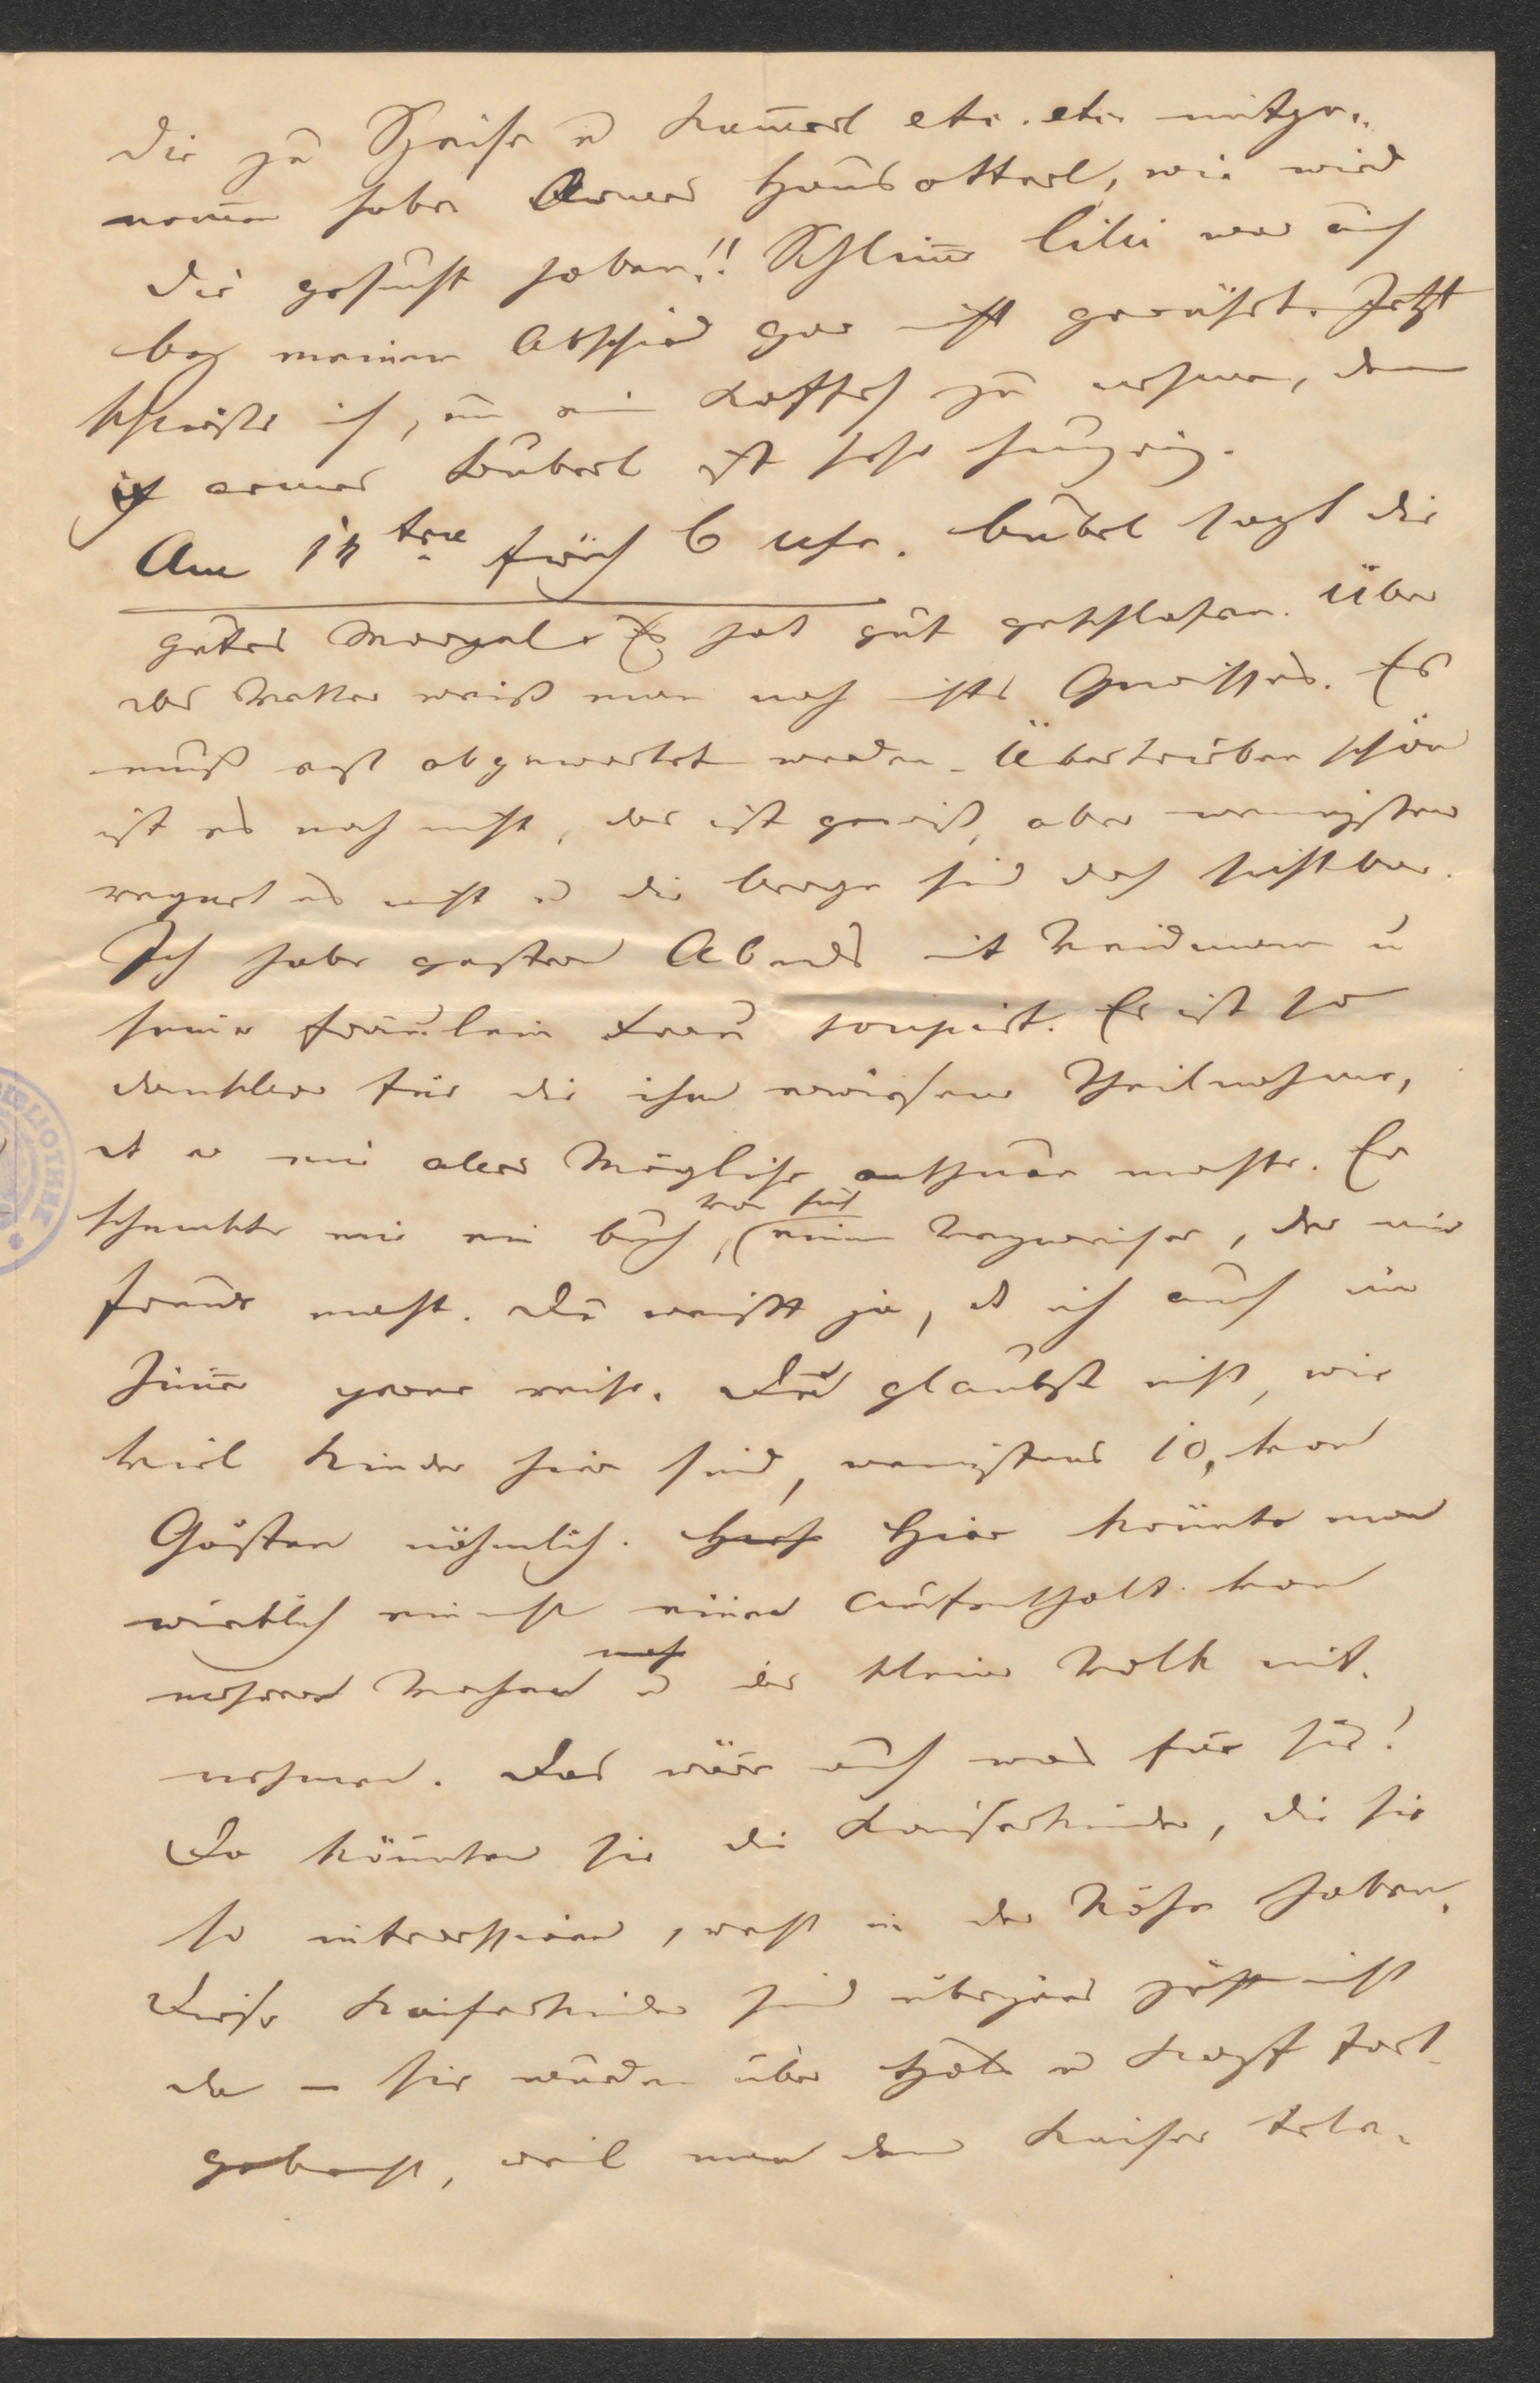 die zu Speise u Kam̅erl etc. etc mitge„
nom̅en habe Armes Hausotterl, wie wird
die gesucht haben!! Schlim̅e Lili war auch
bey meinem Abschied gar nicht gerührt. Jetzt
schließe ich, um ein Kaffeh zu nehmen, denn
ich armes Buberl ist sehr hungrig.
Am 14ten früh 6 Uhr. Buberl sagt dir
guten Morgal. Es hat gut geschlafen. Über
das Wetter weiß man noch nichts Gewisses. Es
muß erst abgewartet werden. Übertrieben schön
ist es noch nicht, das ist gewiß, aber wenigstens
regnet es nicht u die Berge sind doch sichtbar.
Ich habe gestern Abends mit Weidmann u
seiner Fräulein Frau soupirt. Er ist so
dankbar für die ihm erwiesene Theilnahme,
er mir alles Mögliche anthuen möchte. Er
schenkte mir ein Buch, (einen Wegweiser, der mir
Freude macht. Du weißt ja, ich auch im
Zim̅er gerne reise. Du glaubst nicht, wie
viel Kinder hier sind, wenigstens 10, von
Gästen nähmlich. Hier kön̅te man
wirklich einmal einen Aufenthalt von
mehreren Wochen u das kleine Volk mit„
nehmen. Das wäre auch was für sie!
Da kön̅ten sie die Kaiserkinder, die sie
so interessiren, recht in der Nähe haben.
Diese Kaiserkinder sind übrigens jetzt nicht
da – sie wurden über Hals u Kopf fort„
gebracht, weil man dem Kaiser tele„